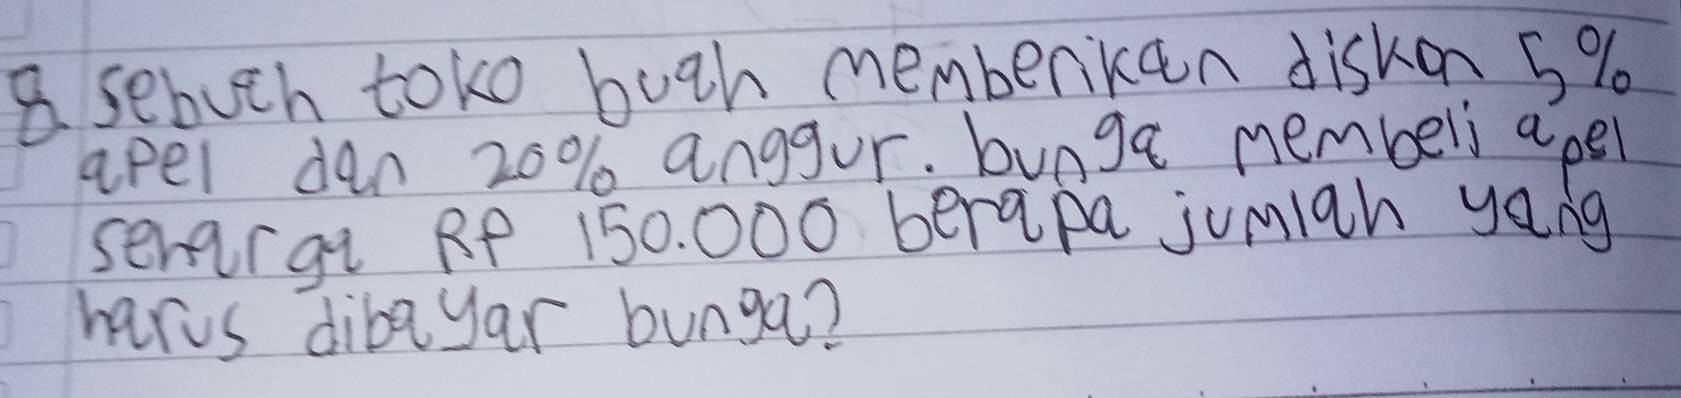 8. sebuah toko buah memberikan diskon 5%
apel dan 20% anggur. bunga membeli apel
seharga Rp 150.000 berapa jumlah yang
harus dibayar bunga?